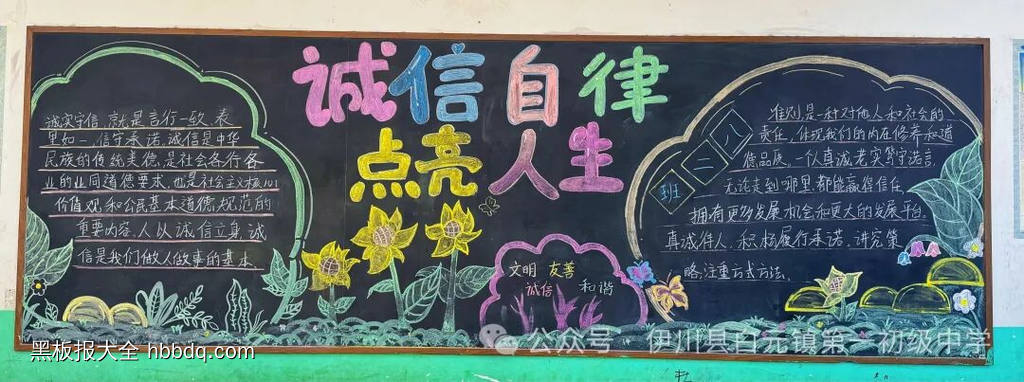 诚信自律
点亮人生
诚实守信,就是言行一致,表
里如一,信守承诺,诚信是中华
民族的传统美德,是社会各行各
业的共同道德要求,也是社会主义核心
价值观和公民基本道德规范的
重要内容,人以诚信立身,诚
信是我们做人做事的基本
文明 友善
诚信 和谐
八
二
班
准则,是一种对他人和社会的
责任,体现我们的内在修养和道
德品质,一个真诚老实笃守诺言
无论走到哪里都能赢得信任
拥有更多发展机会和更大的发展平台。
真诚待人、积极履行承诺、讲究策
略,注重方式方法。
黑板报大全 hbbdq.com
公众号 · 伊川县白元镇第一初级中学